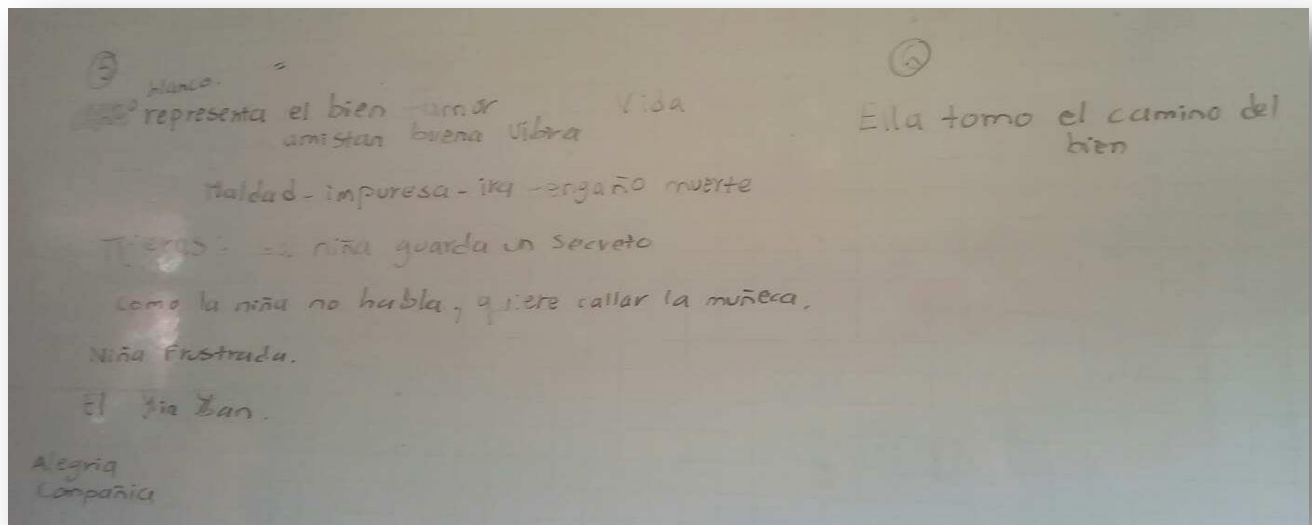 5
blanco. =
representa el bien - amor Vida
amistan buena vibra
Maldad - impuresa - ira - engaño muerte
Tijeras: niña guarda un secreto
como la niña no habla, quiere callar la muñeca.
Niña Frustrada.
El Yin Yan.
Alegria
Compañia
6
Ella tomo el camino del
bien